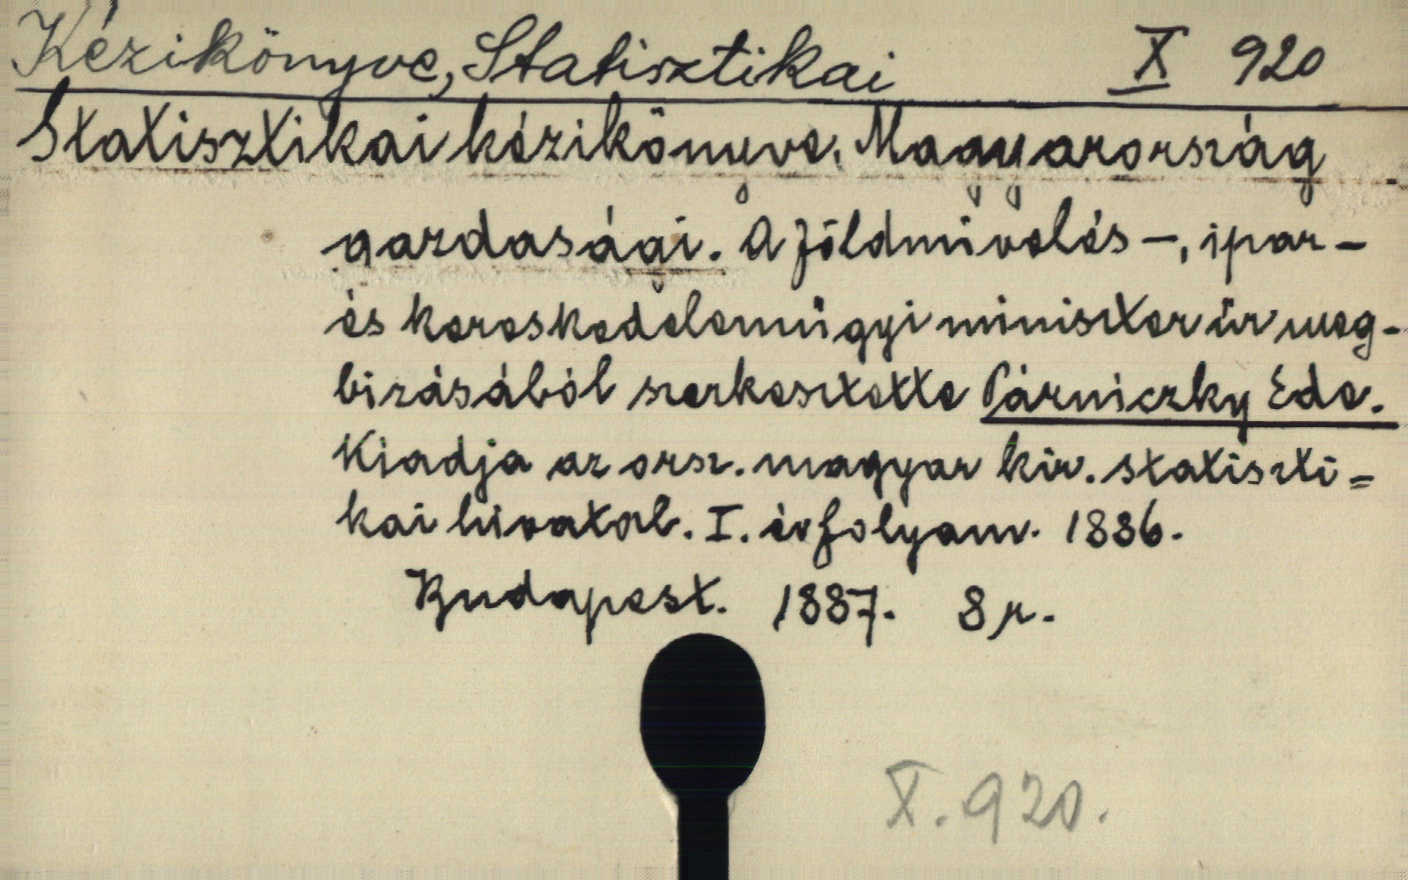 Kézikönyve, Statisztikai X 920
Statisztikai kézikönyve, Magyarország
gazdasági. A földmüvelés-, ipar-
és kereskedelemügyi miniszter úr meg-
bizásából szerkesztette Párniczky Ede.
Kiadja az orsz. magyar kir. statiszti=
kai hivatal. I. évfolyam. 1886.
Budapest. 1887. 8 r.
X. 920.